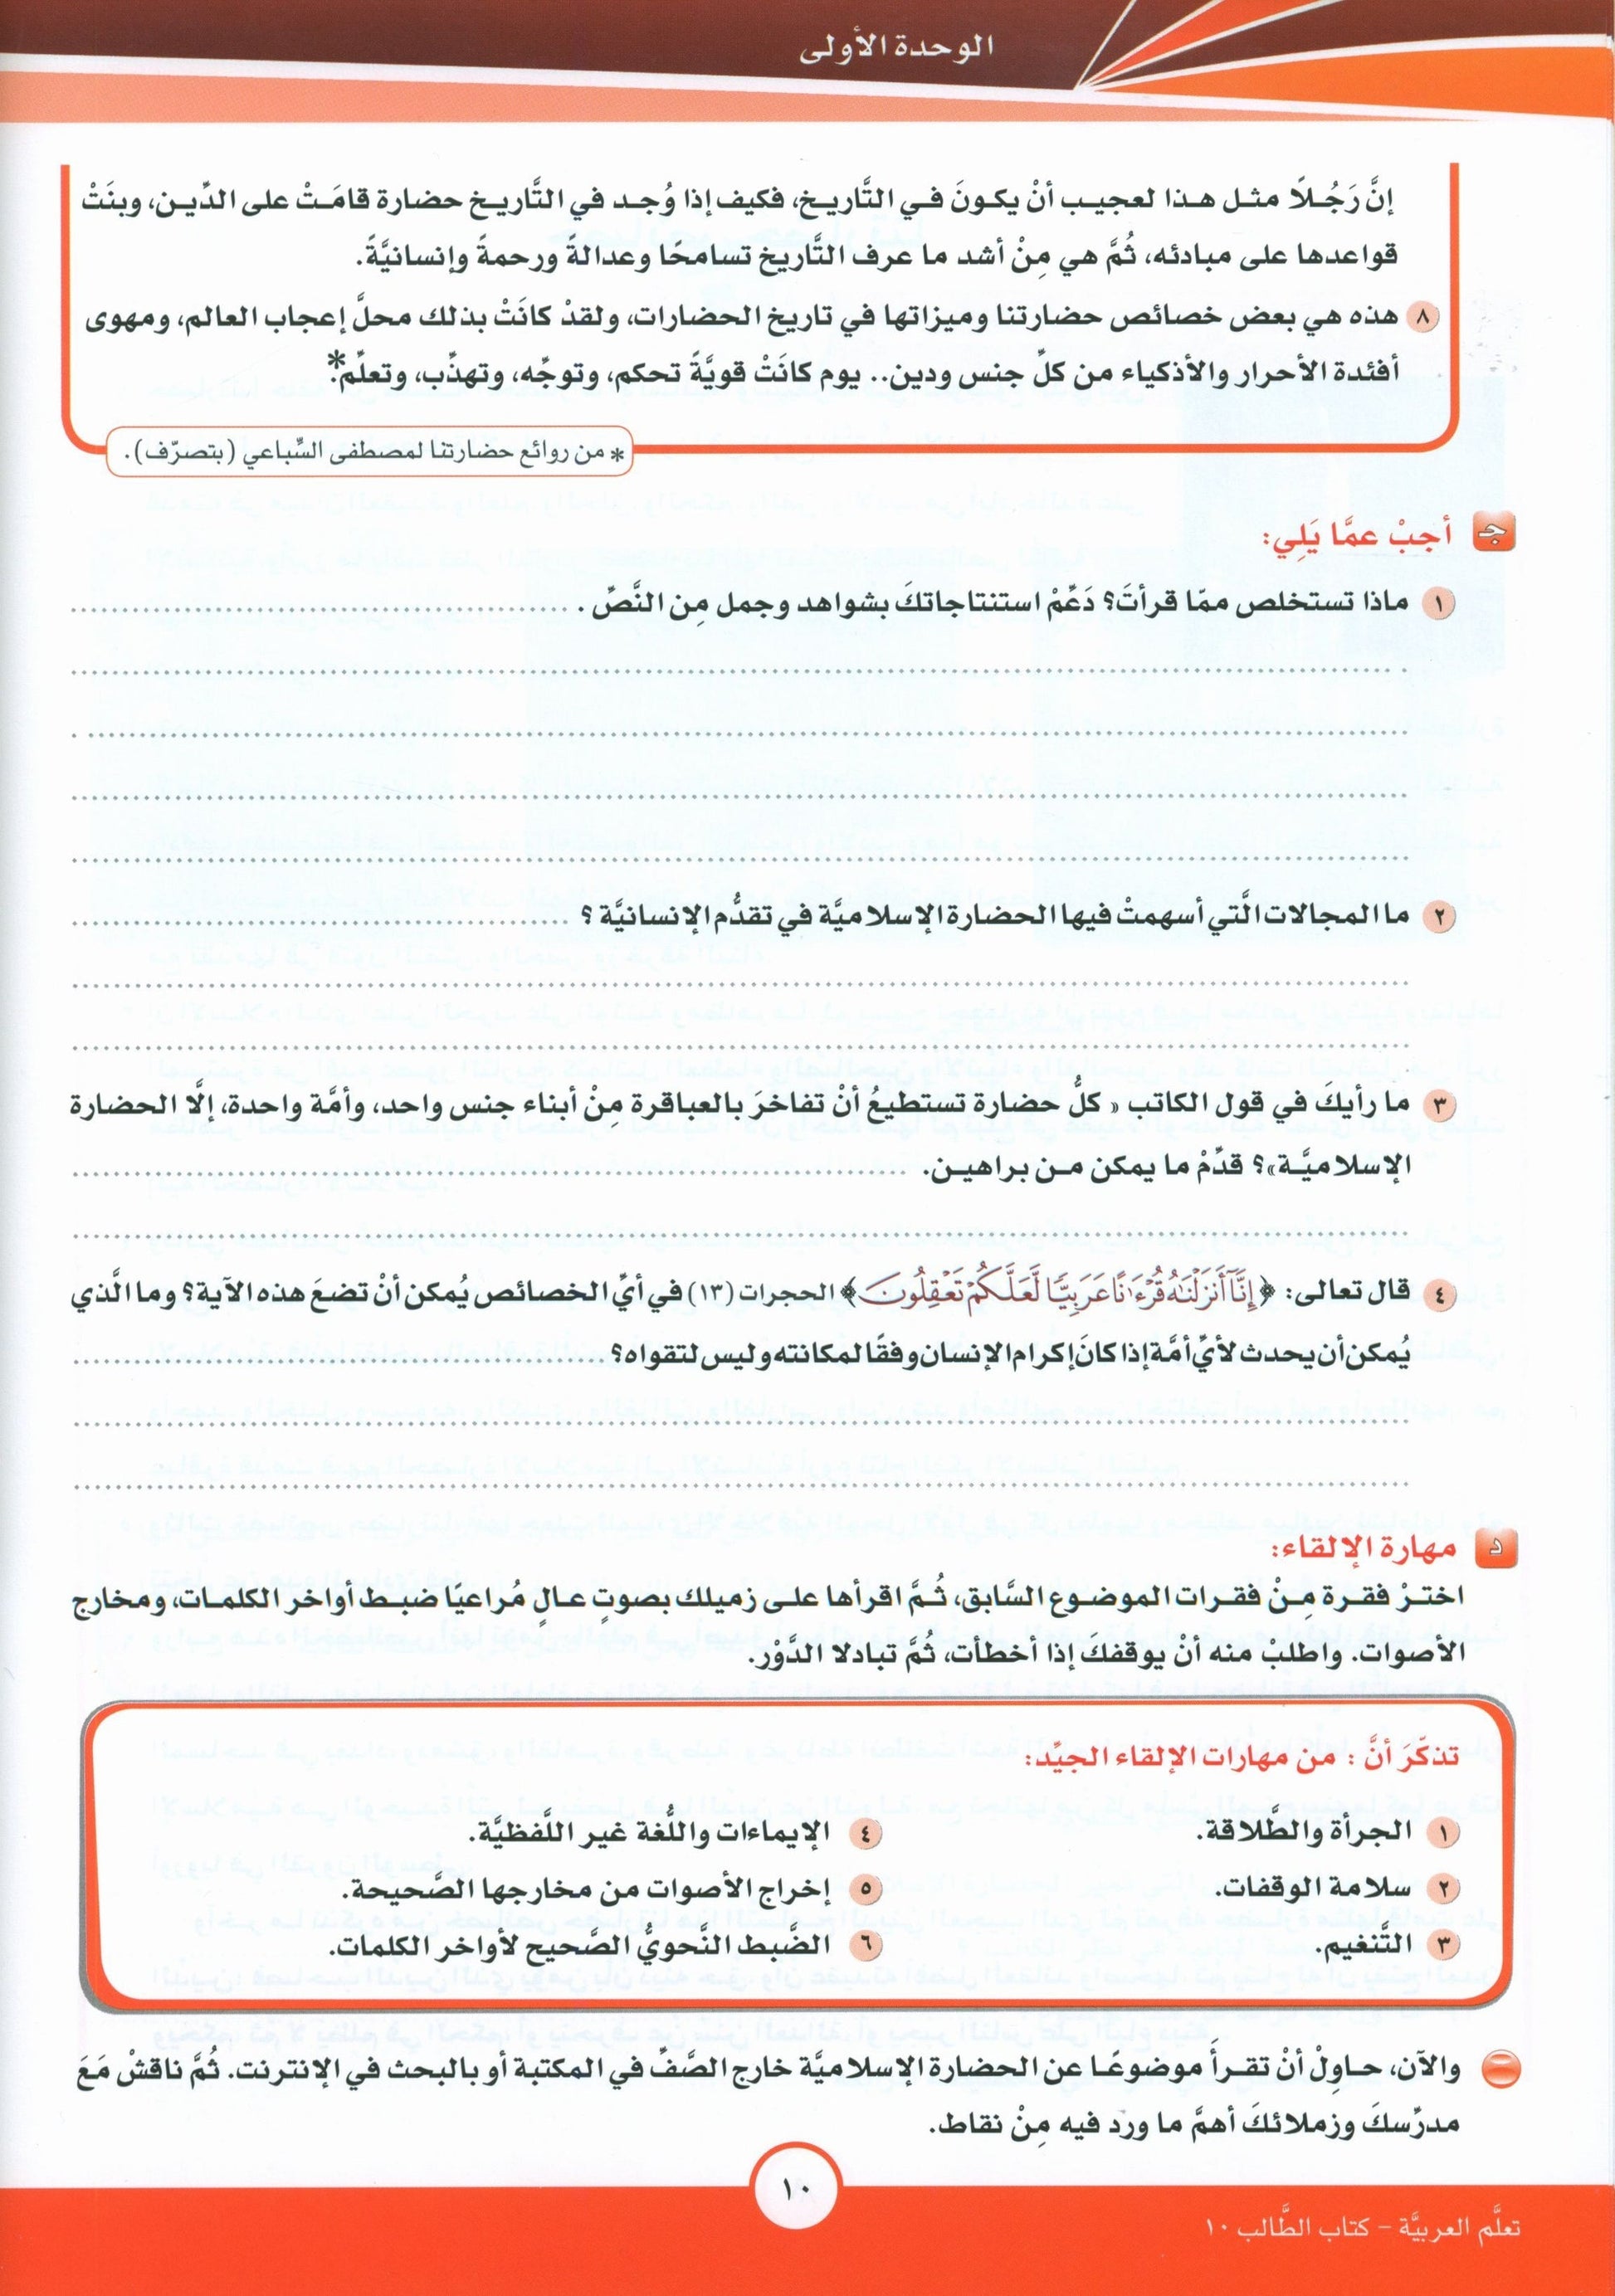 الوحدة الأولى
إنَّ رَجُلًا مثل هذا لعجيب أنْ يكونَ في التَّاريخ، فكيف إذا وُجد في التَّاريخ حضارة قامَتْ على الدِّين، وبنَتْ
قواعدها على مبادئه، ثُمَّ هي مِنْ أشد ما عرف التَّاريخ تسامحًا وعدالةً ورحمةً وإنسانيَّةً.
٨ هذه هي بعض خصائص حضارتنا وميزاتها في تاريخ الحضارات، ولقدْ كانَتْ بذلك محلَّ إعجاب العالم، ومهوى
أفئدة الأحرار والأذكياء من كلِّ جنس ودين.. يوم كانَتْ قويَّةً تحكم، وتوجِّه، وتهذِّب، وتعلِّم.*
* من روائع حضارتنا لمصطفى السِّباعي (بتصرّف).
جـ أجبْ عمَّا يَلِي:
١ ماذا تستخلص ممّا قرأتَ؟ دَعِّمْ استنتاجاتكَ بشواهد وجمل مِن النَّصِّ .
٢ ما المجالات الَّتي أسهمتْ فيها الحضارة الإسلاميَّة في تقدُّم الإنسانيَّة ؟
٣ ما رأيكَ في قول الكاتب « كلُّ حضارة تستطيعُ أنْ تفاخرَ بالعباقرة مِنْ أبناء جنس واحد، وأمَّة واحدة، إلَّا الحضارة
الإسلاميَّة»؟ قدِّمْ ما يمكن من براهين.
٤ قال تعالى: ﴿إِنَّآ أَنزَلْنَٰهُ قُرْءَٰنًا عَرَبِيًّا لَّعَلَّكُمْ تَعْقِلُونَ﴾ الحجرات (١٣) في أيِّ الخصائص يُمكن أنْ تضعَ هذه الآية؟ وما الَّذي
يُمكن أن يحدث لأيِّ أمَّة إذا كانَ إكرام الإنسان وفقًا لمكانته وليس لتقواه؟
د مهارة الإلقاء:
اخترْ فقرة مِنْ فقرات الموضوع السَّابق، ثُمَّ اقرأها على زميلك بصوتٍ عالٍ مُراعيًا ضبط أواخر الكلمات، ومخارج
الأصوات. واطلبْ منه أنْ يوقفكَ إذا أخطأت، ثُمَّ تبادلا الدَّوْر.
تذكّرَ أنَّ : من مهارات الإلقاء الجيِّد:
١ الجرأة والطَّلاقة.
٢ سلامة الوقفات.
٣ التَّنغيم.
٤ الإيماءات واللُّغة غير اللَّفظيَّة.
٥ إخراج الأصوات من مخارجها الصَّحيحة.
٦ الضَّبط النَّحويُّ الصَّحيح لأواخر الكلمات.
والآن، حاولْ أنْ تقرأَ موضوعًا عن الحضارة الإسلاميَّة خارج الصَّفِّ في المكتبة أو بالبحث في الإنترنت. ثُمَّ ناقشْ مَعَ
مدرِّسكَ وزملائكَ أهمَّ ما ورد فيه مِنْ نقاط.
١٠
تعلَّم العربيَّة - كتاب الطَّالب ١٠